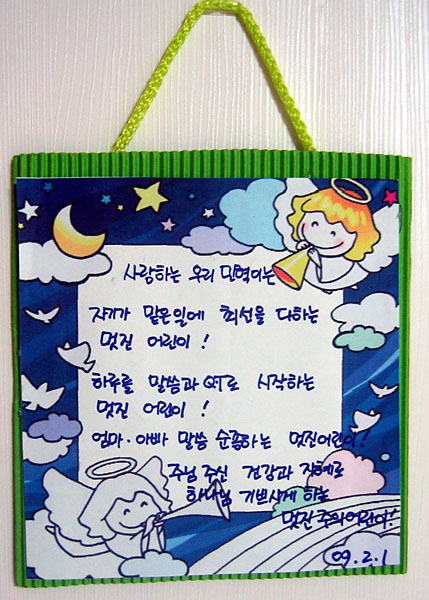 사랑하는 우리 민혁이는
자기가 맡은일에 최선을 다하는
멋진 어린이!
하루를 말씀과 QT로 시작하는
멋진 어린이!
엄마·아빠 말씀 순종하는 멋진어린이!
주님 주신 건강과 지혜로
하나님 기쁘시게 하는
멋진 주의어린이!
09.2.1